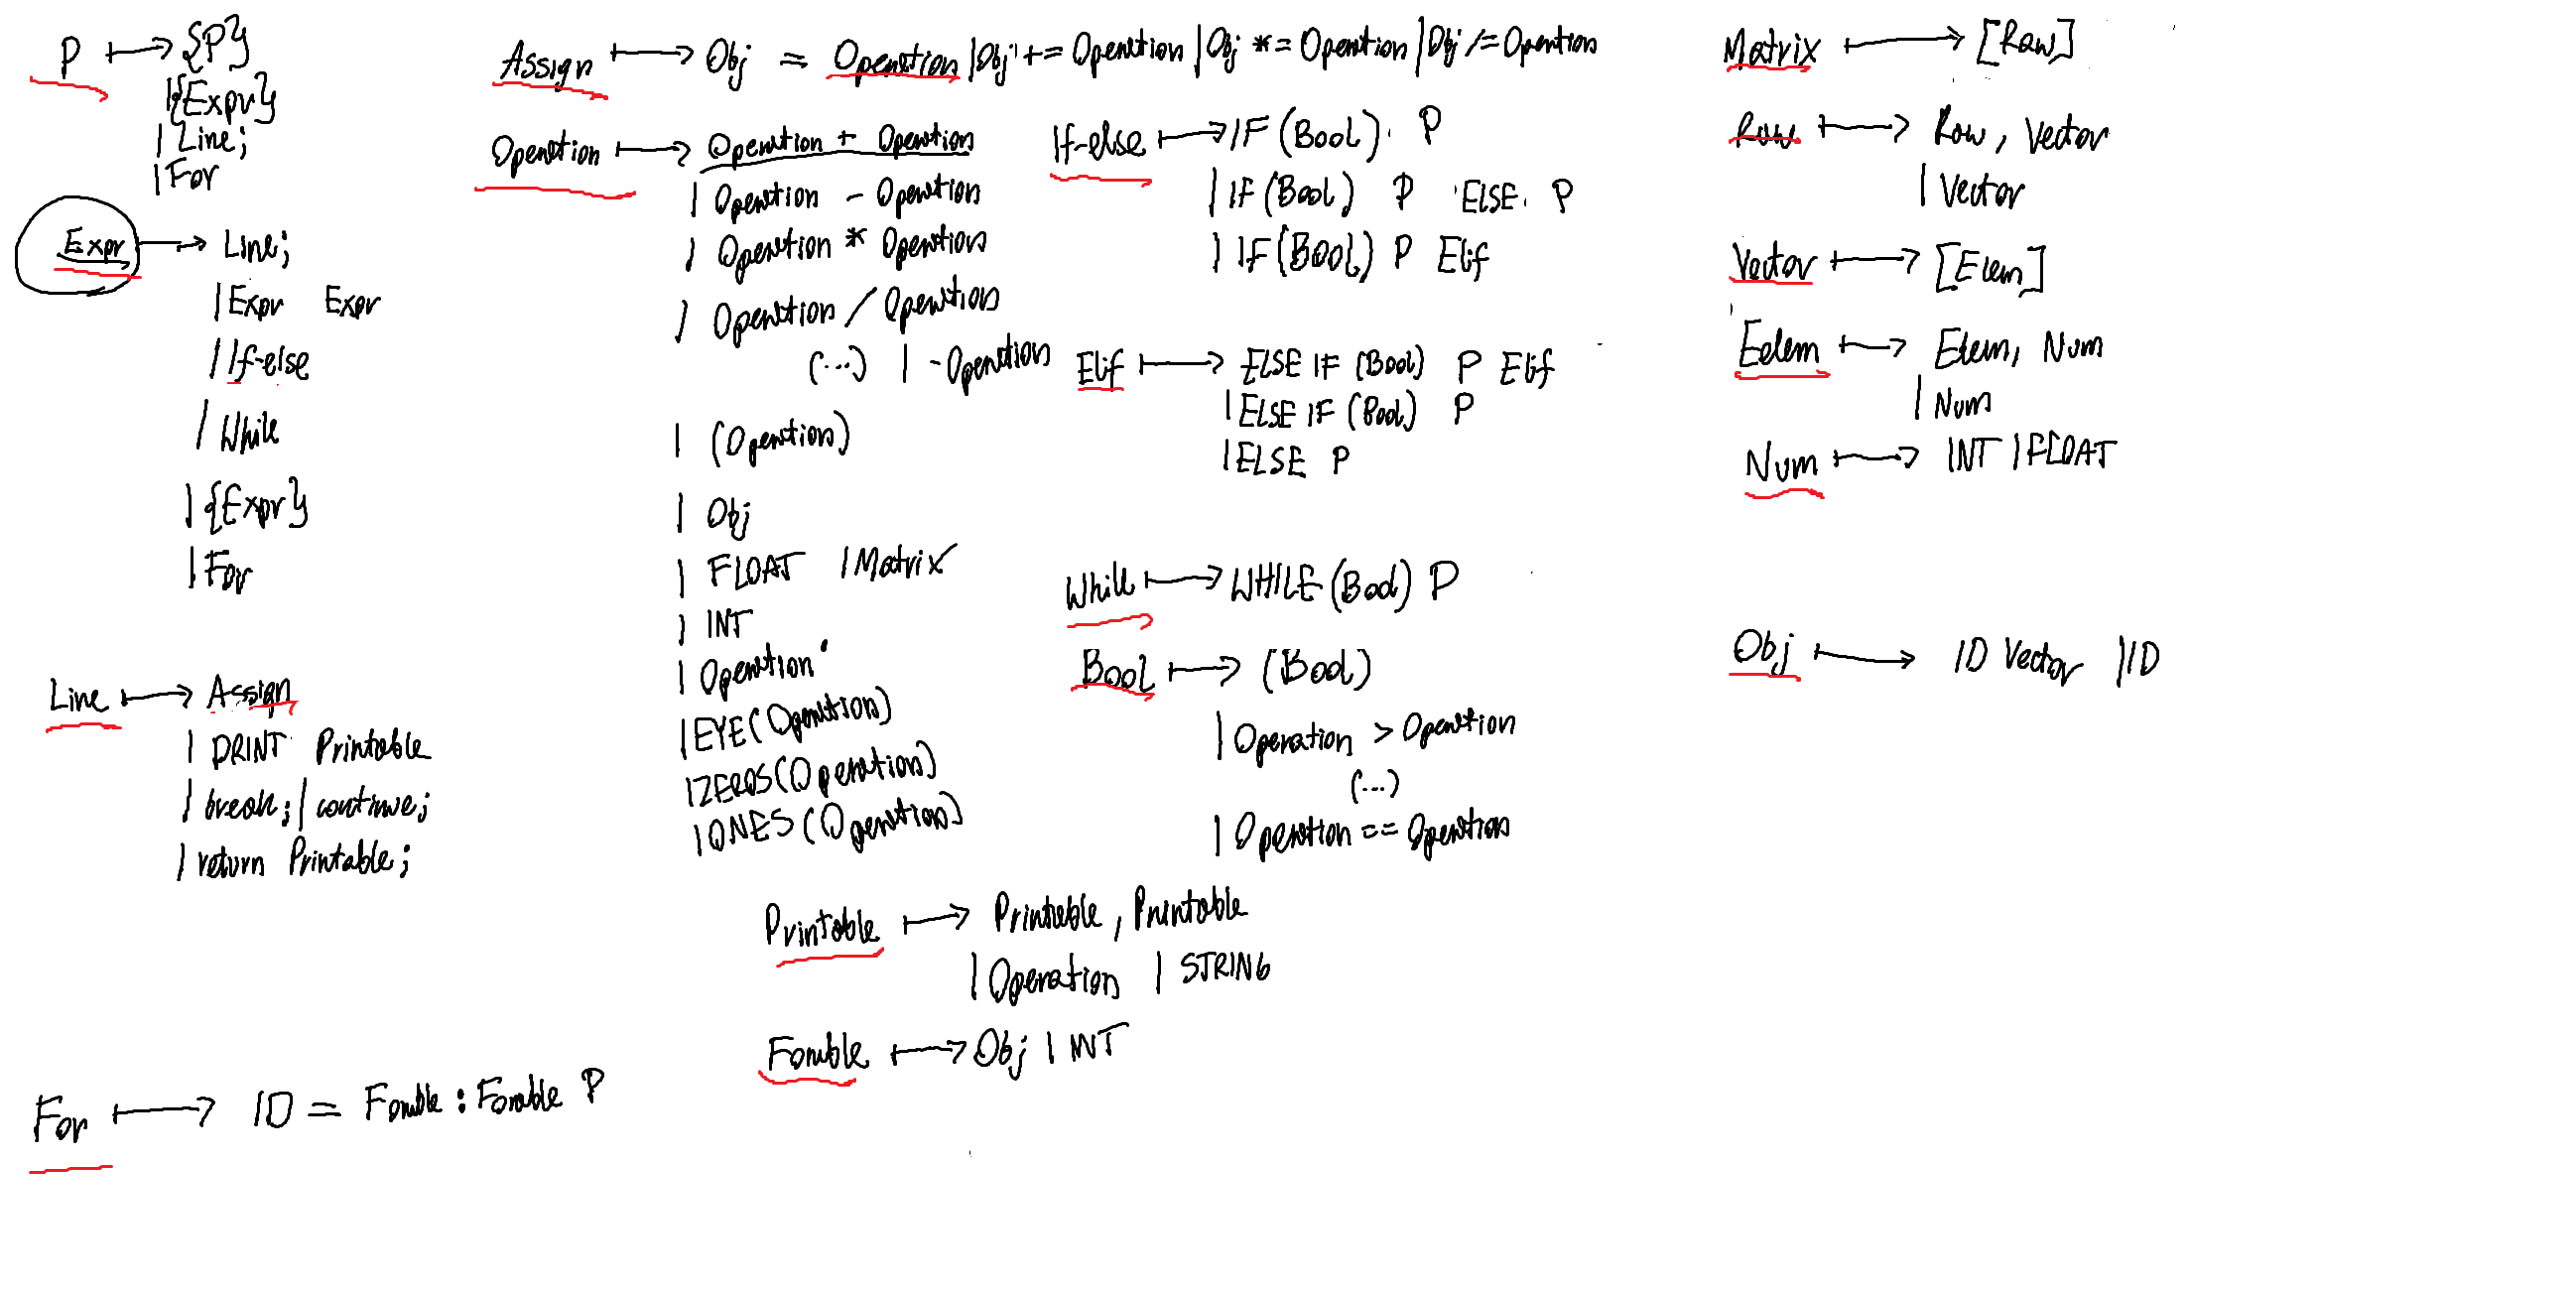 P ↦ {P}
| {Expr}
| Line;
| For
Expr → Line;
| Expr Expr
| If-else
| While
| {Expr}
| For
Line ↦ Assign
| PRINT Printable
| break; | continue;
| return Printable;
For ↦ ID = Forable : Forable P
Assign ↦ Obj = Operation | Obj += Operation | Obj *= Operation | Obj /= Operation
Operation ↦ Operation + Operation
| Operation - Operation
| Operation * Operation
| Operation / Operation
(...) | -Operation
| (Operation)
| Obj
| FLOAT | Matrix
| INT
| Operation'
| EYE(Operation)
| ZEROS(Operation)
| ONES(Operation)
If-else ↦ IF (Bool) P
| IF (Bool) P ELSE P
| IF (BOOL) P Elif
Elif ↦ ELSE IF (Bool) P Elif
| ELSE IF (Bool) P
| ELSE P
While ↦ WHILE (Bool) P
Bool ↦ (Bool)
| Operation > Operation
(...)
| Operation == Operation
Printable ↦ Printable, Printable
| Operation | STRING
Forable ↦ Obj | INT
Matrix ↦ [Raw]
Raw ↦ Row, Vector
| Vector
Vector ↦ [Elem]
Eelem ↦ Elem, Num
| Num
Num ↦ INT | FLOAT
Obj ↦ ID Vector | ID